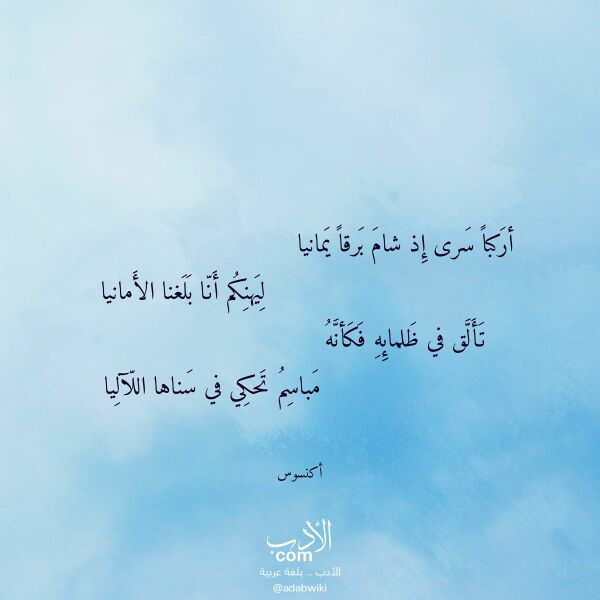 أرَكباً سَرى إِذ شامَ بَرقاً يَمانيا
لِيَهنِكُم أَنّا بَلَغنا الأَمانيا
تَأَلَّق في ظَلمائِهِ فَكَأنَّهُ
مَباسِمُ تَحكِي في سَناها اللّآلِيا
أكنسوس
الأدب
com
الأدب .. بلغة عربية
@adabwiki